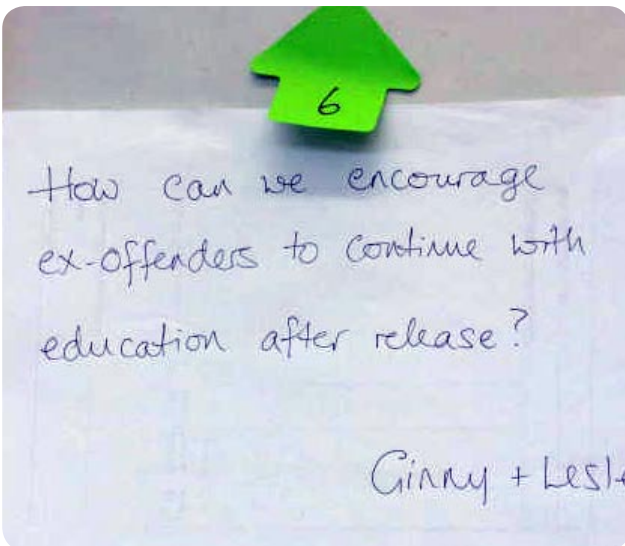 6
How can we encourage
ex-offenders to continue with
education after release?
Ginny +